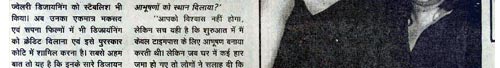 ज्वेलरी डिजायनिंग को स्टैबलिश भी
किया। अब उनका एकमात्र मकसद
एवं सपना फिल्मों में भी डिजायनिंग
को क्रेडिट दिलाना एवं इसे पुरस्कार
कोटि में शामिल करना है। सबसे अहम
बात तो यह है कि इनके सारे डिजायन
आभूषणों को स्थान दिलाया?''
''आपको विश्वास नहीं होगा,
लेकिन सच यही है कि शुरुआत में मैं
केवल टाइमपास के लिए आभूषण बनाया
करती थी। लेकिन जब घर में कई हार
जमा हो गए तो लोगों ने सलाह दी कि